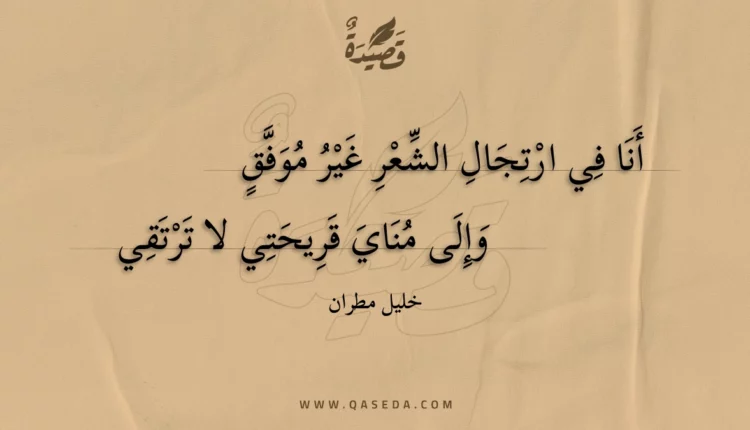 قَصِيدَةٌ
أَنَا فِي ارْتِجَالِ الشِّعْرِ غَيْرُ مُوَفَّقٍ
وَإِلَى مُنَايَ قَرِيحَتِي لا تَرْتَقِي
خليل مطران
WWW.QASEDA.COM